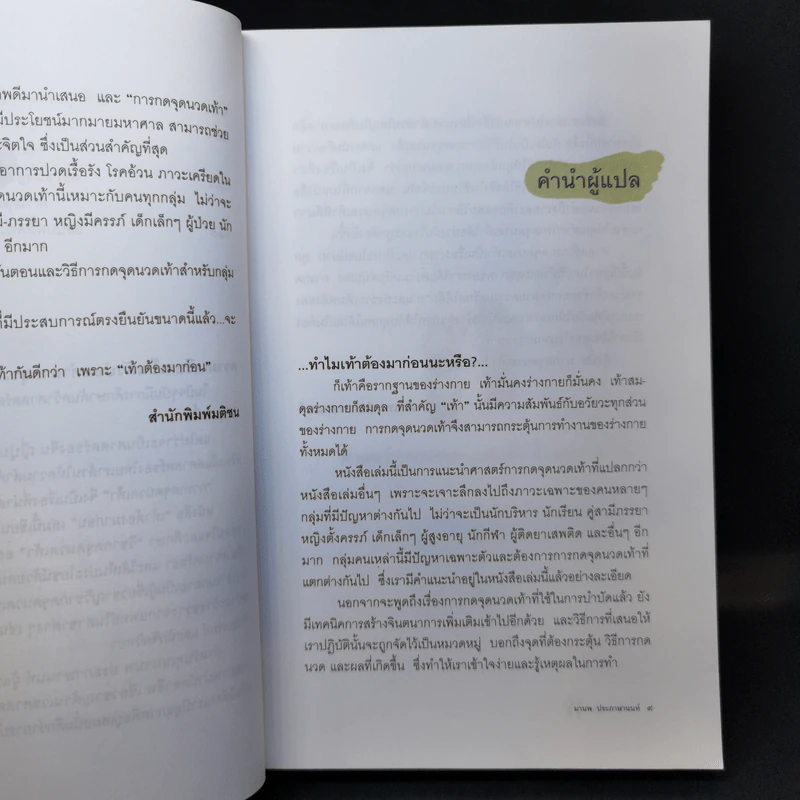 พดีมานำเสนอ และ “การกดจุดนวดเท้า”
มีประโยชน์มากมายมหาศาล สามารถช่วย
จิตใจ ซึ่งเป็นส่วนสำคัญที่สุด
อาการปวดเรื้อรัง โรคอ้วน ภาวะเครียดใน
นวดเท้านี้เหมาะกับคนทุกกลุ่ม ไม่ว่าจะ
มี-ภรรยา หญิงมีครรภ์ เด็กเล็กๆ ผู้ป่วย นัก
อีกมาก
ั้นตอนและวิธีการกดจุดนวดเท้าสำหรับกลุ่ม
ที่มีประสบการณ์ตรงยืนยันขนาดนี้แล้ว...จะ
ท้ากันดีกว่า เพราะ “เท้าต้องมาก่อน”
สำนักพิมพ์มติชน
คำนำผู้แปล
...ทำไมเท้าต้องมาก่อนนะหรือ?...
ก็เท้าคือรากฐานของร่างกาย เท้ามั่นคงร่างกายก็มั่นคง เท้าสม-
ดุลร่างกายก็สมดุล ที่สำคัญ “เท้า” นั้นมีความสัมพันธ์กับอวัยวะทุกส่วน
ของร่างกาย การกดจุดนวดเท้าจึงสามารถกระตุ้นการทำงานของร่างกาย
ทั้งหมดได้
หนังสือเล่มนี้เป็นการแนะนำศาสตร์การกดจุดนวดเท้าที่แปลกกว่า
หนังสือเล่มอื่นๆ เพราะจะเจาะลึกลงไปถึงภาวะเฉพาะของคนหลายๆ
กลุ่มที่มีปัญหาต่างกันไป ไม่ว่าจะเป็นนักบริหาร นักเรียน คู่สามีภรรยา
หญิงตั้งครรภ์ เด็กเล็กๆ ผู้สูงอายุ นักกีฬา ผู้ติดยาเสพติด และอื่นๆ อีก
มาก กลุ่มคนเหล่านี้มีปัญหาเฉพาะตัวและต้องการการกดจุดนวดเท้าที่
แตกต่างกันไป ซึ่งเรามีคำแนะนำอยู่ในหนังสือเล่มนี้แล้วอย่างละเอียด
นอกจากจะพูดถึงเรื่องการกดจุดนวดเท้าที่ใช้ในการบำบัดแล้ว ยัง
มีเทคนิคการสร้างจินตนาการเพิ่มเติมเข้าไปอีกด้วย และวิธีการที่เสนอให้
เราปฏิบัตินั้นจะถูกจัดไว้เป็นหมวดหมู่ บอกถึงจุดที่ต้องกระตุ้น วิธีการกด
นวด และผลที่เกิดขึ้น ซึ่งทำให้เราเข้าใจง่ายและรู้เหตุผลในการทำ
มานพ ประภาษานนท์ ๙